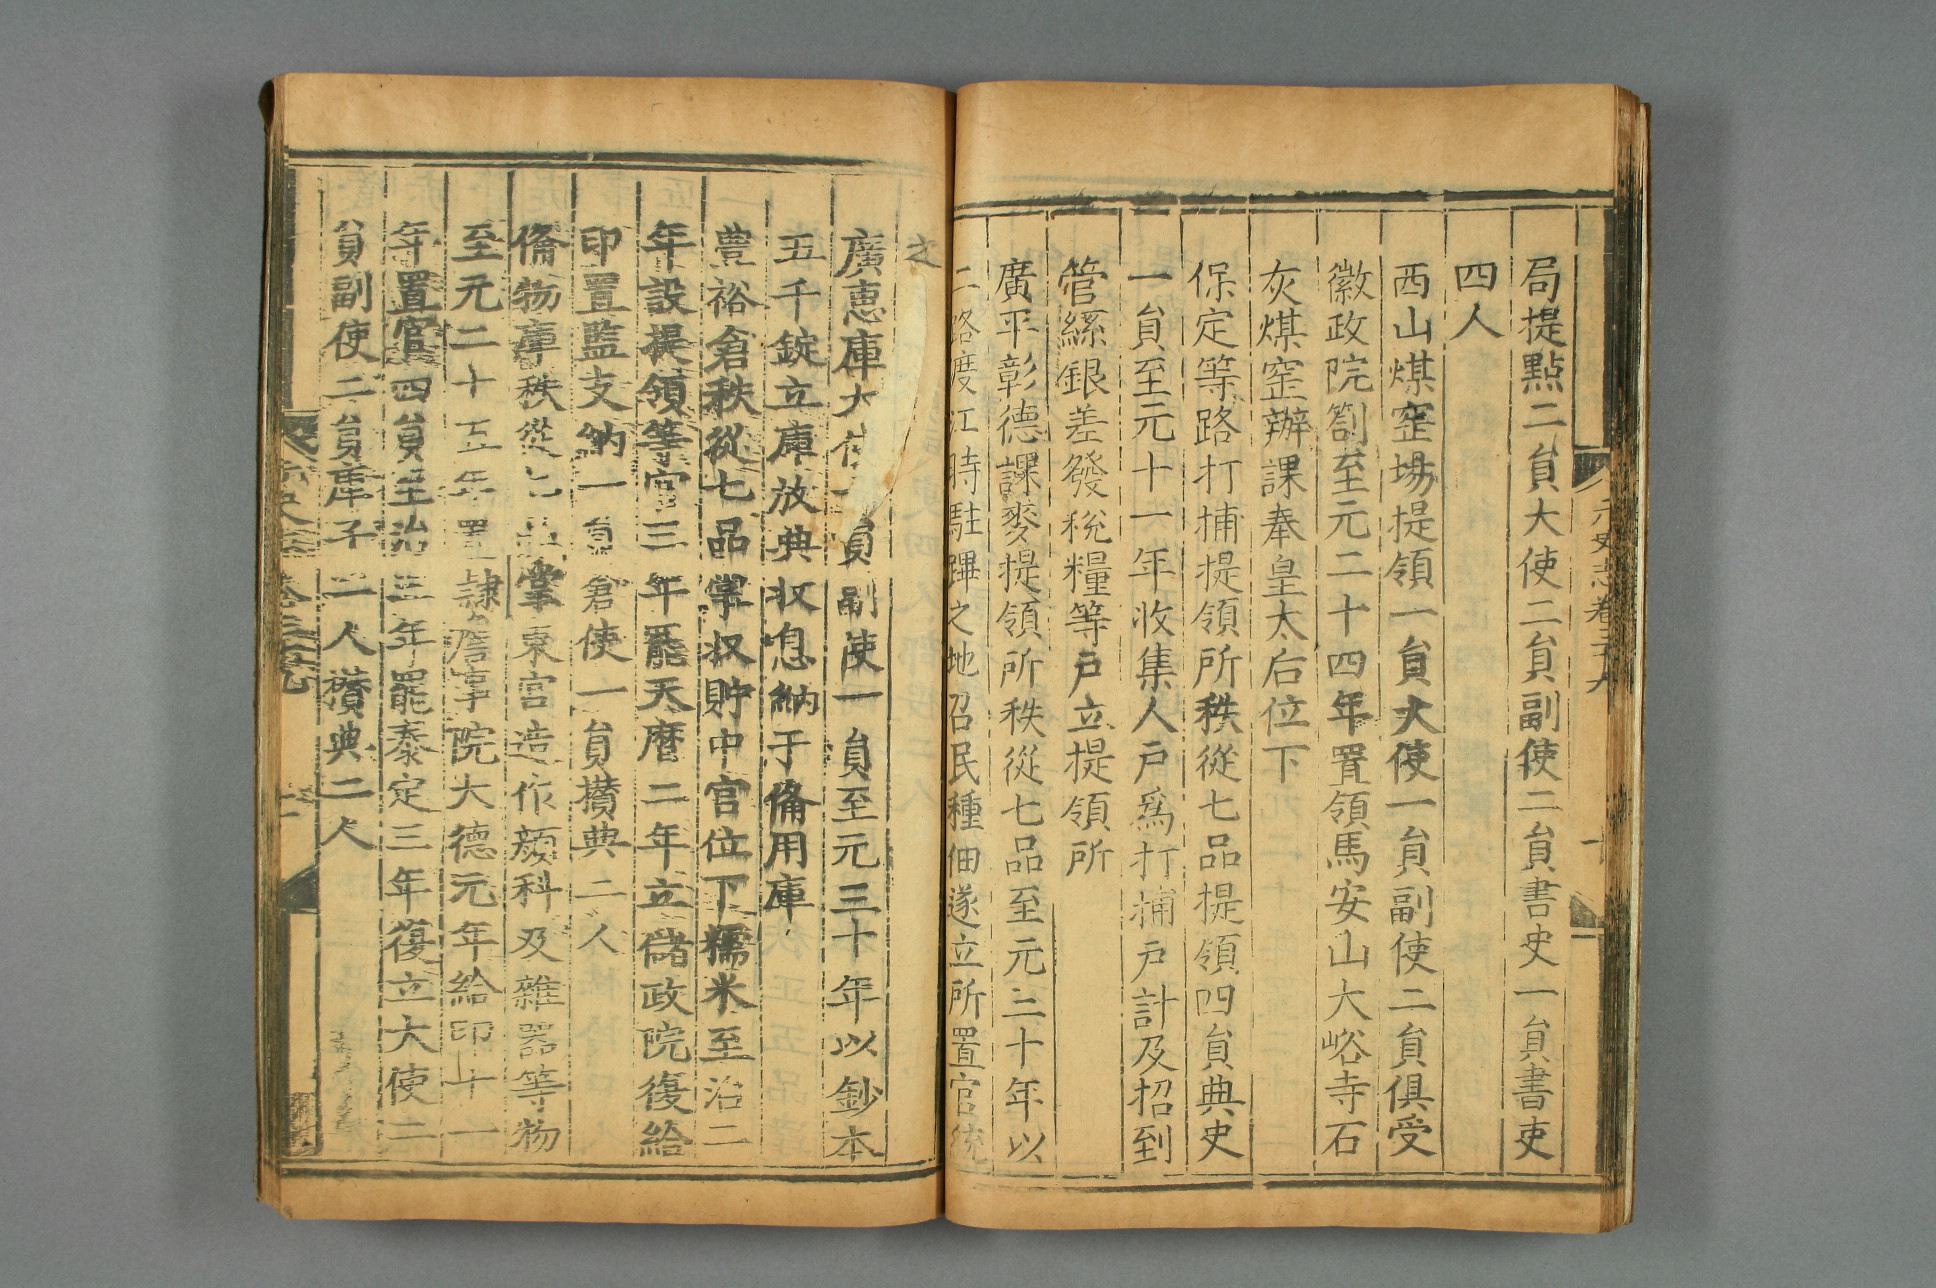 局提點二員大使二員副使二員書史一員書吏
四人
西山煤窑場提領一員大使一員副使二員俱受
徽政院劄至元二十四年置領馬安山大峪寺石
灰煤窑辦課奉皇太后位下
保定等路打捕提領所秩從七品提領四員典史
一員至元十一年收集人戶爲打捕戶計及招到
管絲銀差發稅糧等戶立提領所
廣平彰德課麥提領所秩從七品至元三十年以
二路度江時駐蹕之地召民種佃遂立所置官統
之
廣惠庫大使一員副使一員至元三十年以鈔本
五千錠立庫放典收息納于備用庫
豊裕倉秩從七品掌収貯中官位下糯米至治二
年設提領等官三年罷天曆二年立儲政院復給
印置監支納一員倉使一員攅典二人
備物庫秩從七品掌東宮造作顔科及雜器等物
至元二十五年置隷詹事院大德元年給印十一
年置官四員至治三年罷泰定三年復立大使二
員副使二員庫子二人攅典二人
元史志卷三十九
十